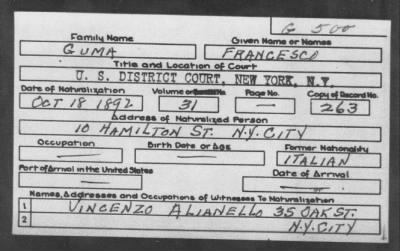 G 500
Family Name Given Name or Names
GUMA FRANCESCO
Title and Location of Court
U. S. DISTRICT COURT, NEW YORK, N.Y.
Date of Naturalization Volume or Page No. Copy of Record No.
OCT 18 1892 31 — 263
Address of Naturalized Person
10 HAMILTON ST. N.Y. CITY
Occupation Birth Date or Age Former Nationality
— — ITALIAN
Port of Arrival in the United States Date of Arrival
— —
Names, Addresses and Occupations of Witnesses To Naturalization
1 VINCENZO ALIANELLO 35 OAK ST.
2 N.Y. CITY